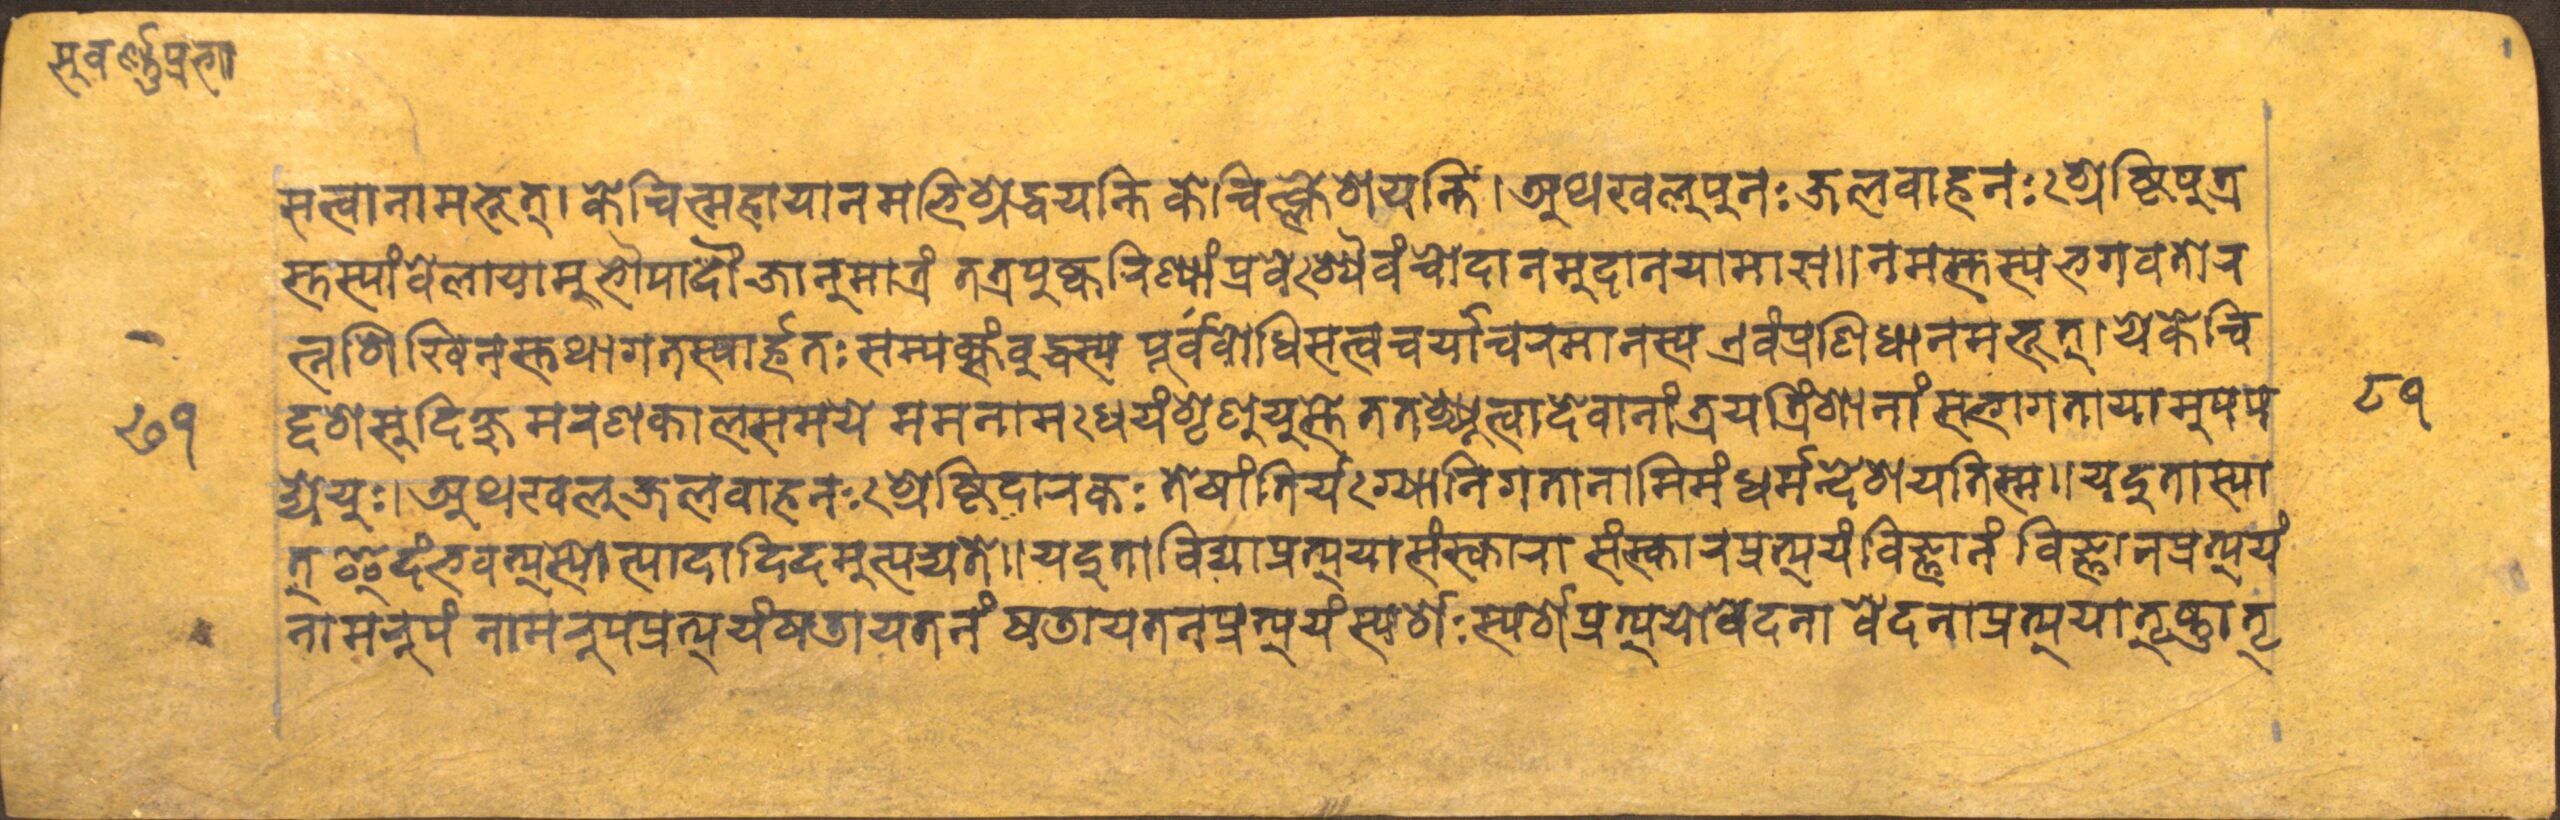 सुवर्ण्णप्रभा
सत्वानामभूत्। केचित्महायानमभिश्रद्धयन्ति केचित्कुशयन्ति। अथ खलु पुनः जलवाहनः श्रेष्ठिपुत्र
स्तस्यां वेलायामुभौ पादौ जानुमात्रं तत्र पुष्करिण्यां प्रवेश्यैवं चोदानमुदानयामास॥ नमस्तस्य भगवतो र
त्नशिखिनस्तथागतस्यार्हतः सम्यक्संबुद्धस्य पूर्वबोधिसत्वचर्यां चरमानस्य एवं प्रणिधानमभूत्। ये केचि
द्दशसु दिक्षु मरणकालसमये मम नामधेयं शृणुयुस्ते ततश्च्युत्वा देवानां त्रयत्रिंशानां सभागतायामुपप
द्येयुः। अथ खलु जलवाहनः श्रेष्ठिदारकः तेषां तिर्यग्योनिगतानामिमं धर्मन्देशयति स्म॥ यदुतास्या
त् इदं भवत्यस्योत्पादादिदमुत्पद्यते॥ यदुताविद्याप्रत्यया संस्कारा संस्कारप्रत्ययं विज्ञानं विज्ञानप्रत्ययं
नामरुपं नामरुपप्रत्ययं षडायतनं षडायतनप्रत्ययं स्पर्शः स्पर्शप्रत्ययो वेदना वेदनाप्रत्यया तृष्णा तृ
८१
८१